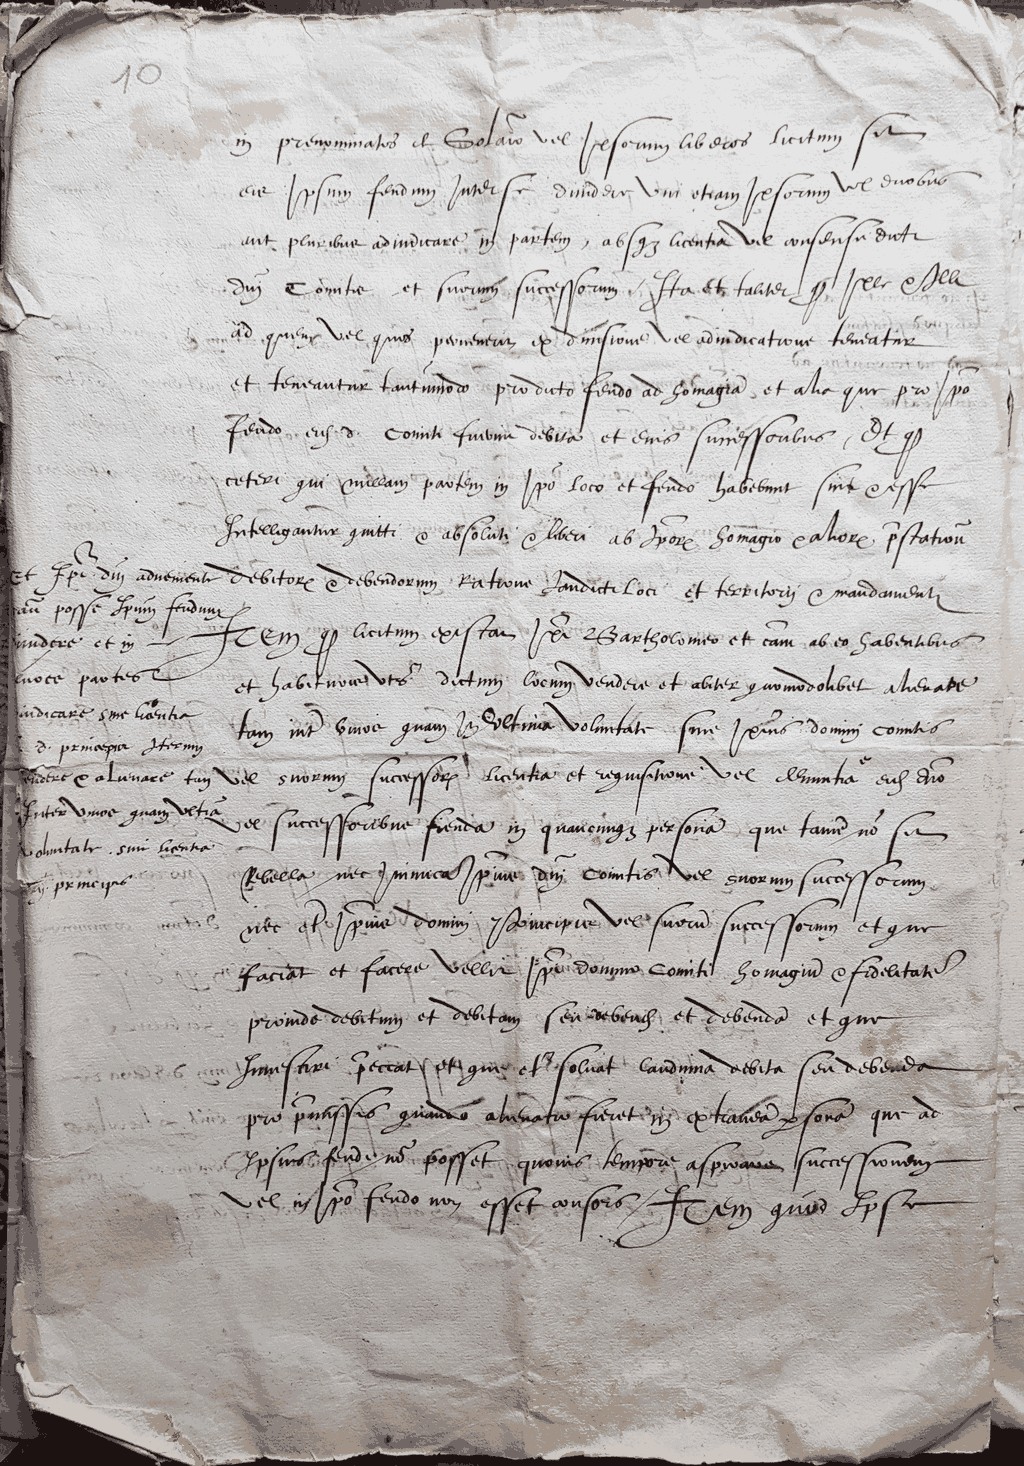 10
in prenominatos et Solario vel Ipsorum liberos licitum sit
eis Ipsum feudum Inter se dividere Uni etiam Ipsorum vel duobus
aut pluribus adiudicare in partem, absq3 licentia vel consensu dicti
dni Comitis et suorum successorum / Ita et taliter qp Ille & Illi
ad quem vel quos pervenerit ex divisione vel adiudicatione teneatur
et teneantur tantumodo pro dicto feudo ad homagia et alia que pro Ipo
feudo eidem d. Comiti fuerint debita et eius successoribus / Et qp
ceteri qui nullam partem in Ipo loco et feudo habebunt sint & esse
Intelligantur quitti & absoluti & liberi ab Ipor homagio & alior prstationu
debitor & debendorum Ratione Iamdicti Loci et territorii & mandamenti
Item qp licitum existat Ipi Bartholomeo et cam ab eo habentibus
et habituris uts dictum locum vendere et aliter quomodolibet alienare
tam intr vivos quam In Ultima voluntate sine Ipius domini comitis
vel suorum successor licentia et requisitione vel denuntia eidem dno
vel successoribus fienda in quamcumq3 personam que tame no sit
Rebella nec Inimica Ipsius dni Comitis vel suorum successorum
nec et Ipsius domini principis vel suoru successorum et que
faciat et facere vellit Ipi domino Comiti homagiu & fidelitate
proinde debitum et debitam seu debend et debenda et que
Investiri peccat et que et solvat laudimia debita seu debenda
pro pmissis quando alienatio fieret in extranea psona que ad
Ipsius feudi no posset quovis tempore aspirare successionem
vel in Ipo feudo non esset consors / Item quod Ipse
Et Ipi dni advenienti
posse Ipsum feudum
dividere et in
partes
adiudicare sine licentia
d. principis Iterum
vendere & alienare tam
Inter vivos quam ultia
voluntate sine licentia
principis